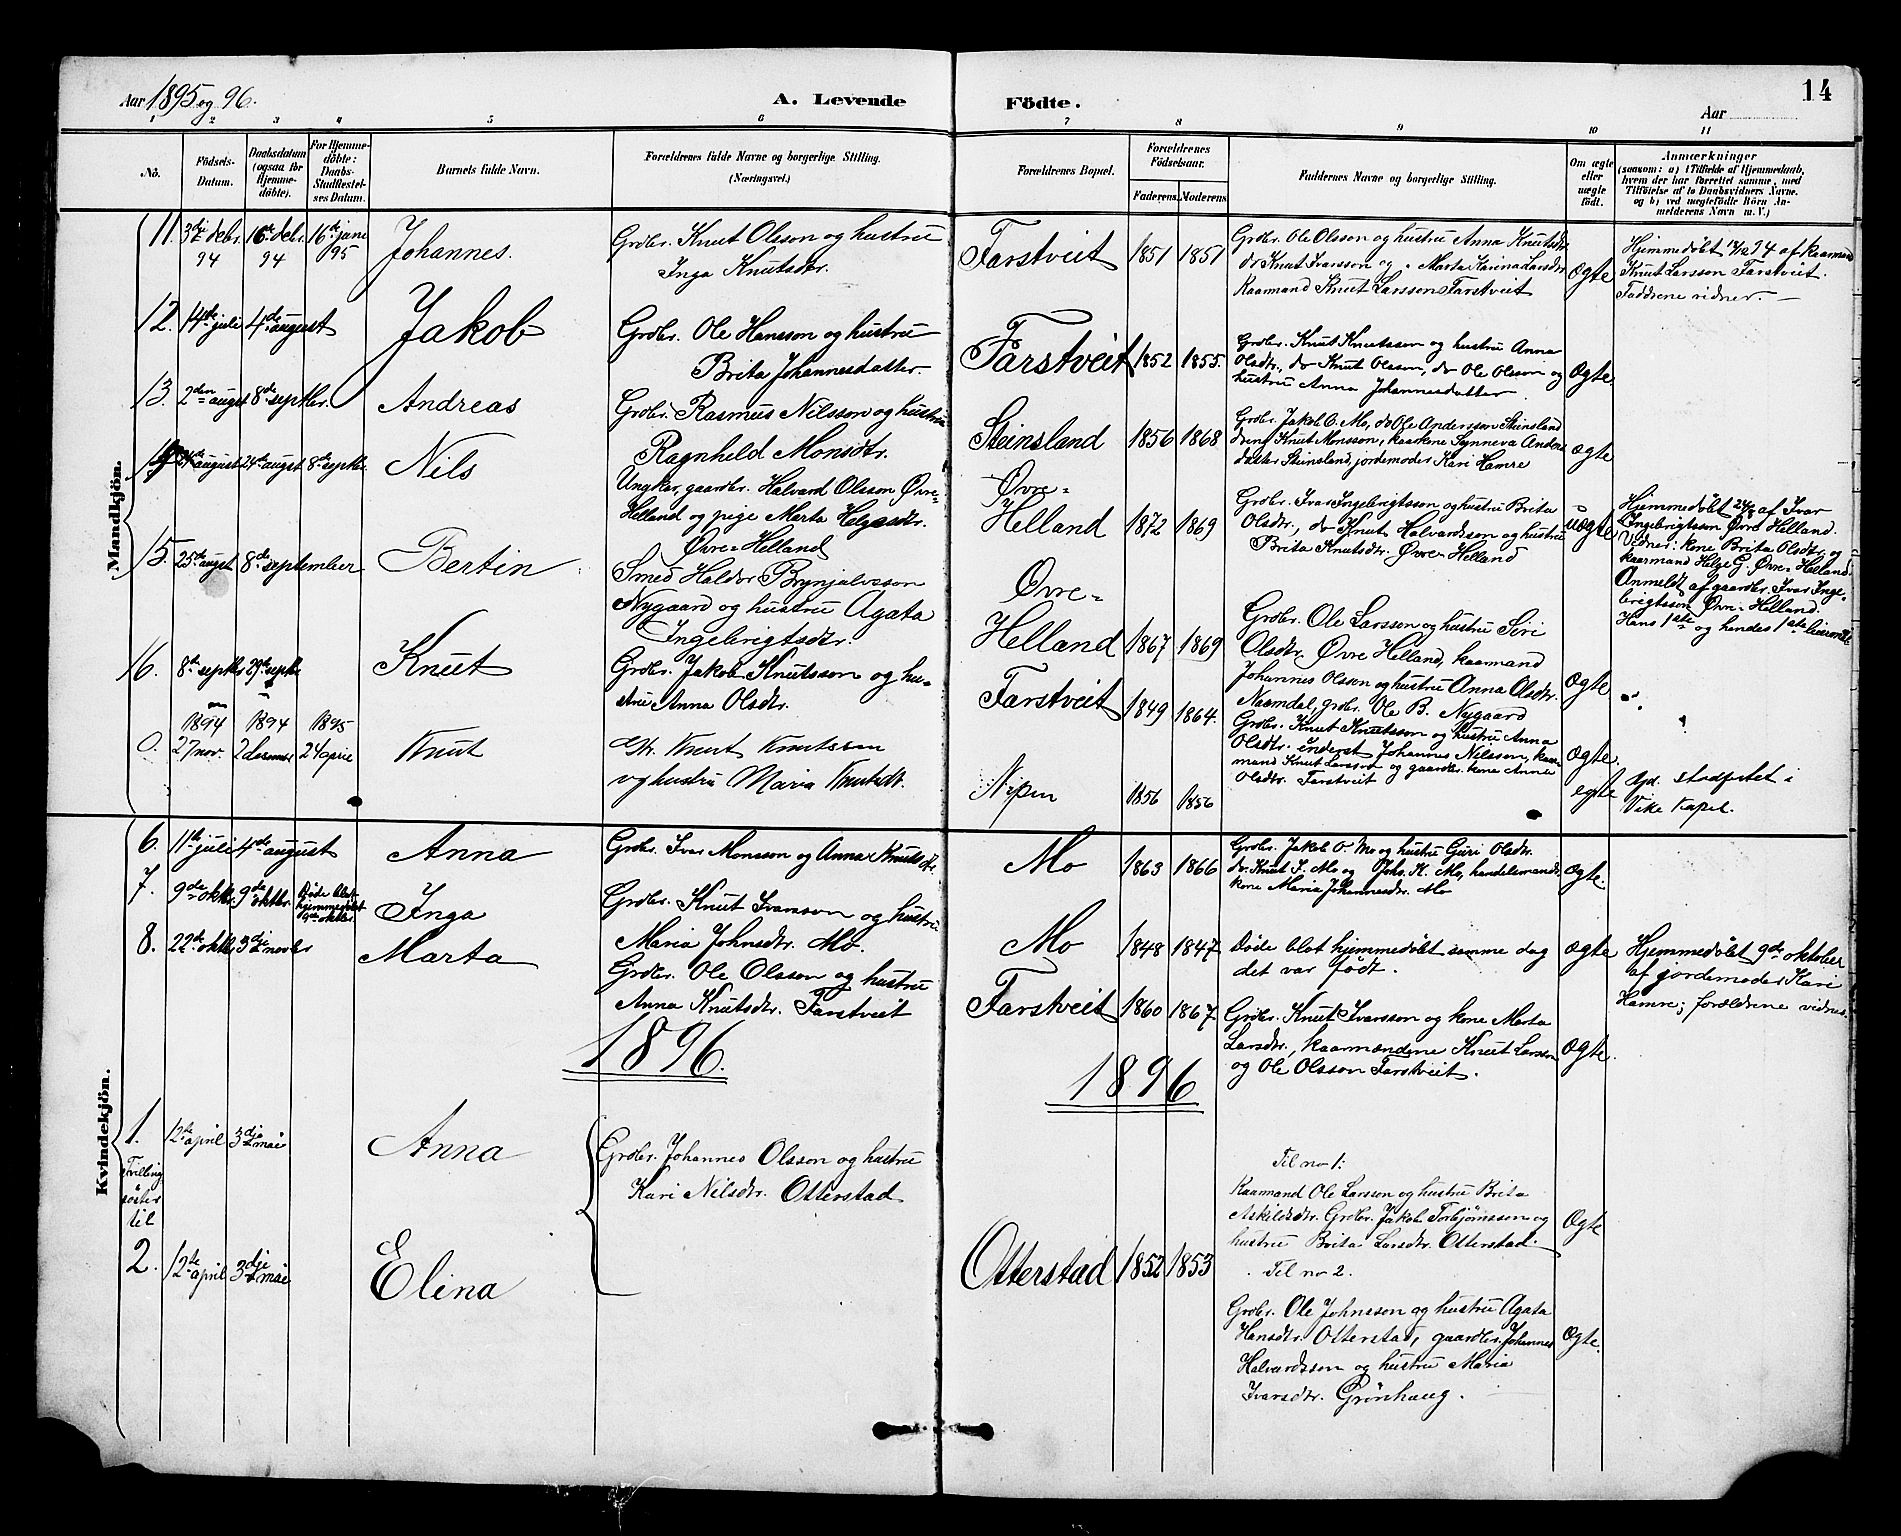 Aar 1895 og 96.
A. Levende
Födte.
14
Aar
1 2 3 4 5 6 7 8 9 10 11
No.
Födsels-Datum.
Daabsdatum (ogsaa for Hjemme-döbte).
For Hjemme-döbte: Daabs-Stadfæstel-ses Datum.
Barnets fulde Navn.
Forældrenes fulde Navne og borgerlige Stilling.
(Næringsvei.)
Forældrenes Bopæl.
Forældrenes Födselsaar.
Faderens. Moderens.
Faddernes Navne og borgerlige Stilling.
Om ægte eller uægte födt.
Anmærkninger
(saasom: a) i Tilfælde af Hjemmedaab,
hvem der har forrettet samme, med
Tilföielse af to Daabsvidners Navne.
og b) ved uægtefödte Börn An-
melderens Navn m. V.)
Mandkjön.
11. 3die debr. 94 16de debr. 94 16de juni 95 Johannes.
Grdbr. Knut Olsson og hustru
Inga Knutsdtr.
Farstveit 1851 1851
Grdbr. Ole Olsson og hustru Anna Knutsdtr.
do Knut Ivarsson og " Marta Karina Larsdtr.
Kaarmand Knut Larsson Farstveit
Ægte
Hjemmedøbt 94 af kaarmand
Knut Larsson Farstveit.
Faddrene vidner. —
12. 14de juli 4de august Jakob
Grdbr. Ole Hansson og hustru
Brita Johannesdatter
Farstveit 1852 1855.
Grdbr. Knut Knutsson og hustru Anna
Olsdtr., do Knut Olsson, do Ole Olsson og
hustru Anna Johannesdatter
Ægte.
13. 2den augst 8de septbr. Andreas
Grdbr. Rasmus Nilsson og hustru
Ragnheld Monsdtr.
Steinsland 1856 1868
Grdbr. Jakob O. Mo, do Ole Andersson Steinsland
dreng Knut Monsson, kaarkone Synneva Anders
datter Steinsland, jordemoder Kari Hamre
Ægte
14. august 24de augst 8de septbr. Nils
Ungkar, gaardbr. Halvard Olsson Øvre-
Helland og pige Marta Helgesdtr.
Øvre-Helland
Øvre-
Helland 1872 1869
Grdbr. Ivar Ingebrigtsson og hustru Brita
Olsdtr., do Knut Halvardsson og hustru
Brita Knutsdtr. Øvre-Helland
uægte
Hjemmedøbt 24/8 af Ivar
Ingebrigtsson Øvre Helland.
Vidner: kone Brita Olsdtr. og
kaarmand Helge G. Øvre-Helland.
Anmeldt af gaardbr. Ivar Inge-
brigtsson Øvre-Helland.
Hans 1ste og hendes 1ste leiermaal
15. 25de augst 8de september Bertin
Smed Haldor Brynjulvsson
Nygaard og hustru Agata
Ingebrigtsdtr.
Øvre-
Helland 1867 1869
Grdbr. Ole Larsson og hustru Siri
Olsdtr. Øvre Helland, kaarmand
Johannes Olsson og hustru Anna Olsdtr.
Naamdal, grdbr. Ole B. Nygaard
Ægte
16. 8de septbr 29de septbr Knut
Grdbr. Jakob Knutsson og hu-
stru Anna Olsdtr.
Farstveit 1849 1864.
Grdbr. Knut Knutsson og hustru Anna
Olsdtr. Johannes Nilsson, kaar-
mand Knut Larsson og gaardbr. kone Anna
Olsdtr. Farstveit
Ægte.
0. 1894 27 nov. 1894 2 desember 1895 24 april Knut
Gbr. Knut Knutssen
og hustru Maria Knutsdt.
Nipen 1856 1856
egte
stadfestet i
Vike Kapel.
Kvindekjön.
6. 11te juli 4de august Anna
Grdbr. Ivar Monsson og Anna Knutsdtr.
Mo 1863 1866
Grdbr. Jakob O. Mo og hustru Guri Olsdtr.
do Knut I. Mo og Johs. K. Mo, handelsmands
kone Maria Johannesdtr. Mo
Ægte.
7. 9de oktbr. 9de oktbr. Døde blot hjemmedøbt 9de oktbr. Inga
Grdbr. Knut Ivarsson og hustru
Maria Johnsdtr. Mo.
Mo 1848 1847
Døde blot hjemmedøbt samme dag
det var født.
Ægte
Hjemmedøbt 9de oktober
af jordemoder Kari
Hamre; forældrene vidner.
8. 22de oktbr 3die novbr Marta
Grdbr. Ole Olsson og hustru
Anna Knutsdtr. Farstveit
Farstveit 1860 1867.
Grdbr. Knut Ivarsson og kone Marta
Larsdtr., kaarmændene Knut Larsson
og Ole Olsson Farstveit.
Ægte.
1896.
1896
1. 12te april 3dje mai Anna
Tvilling
søster
til
Grdbr. Johannes Olsson og hustru
Kari Nilsdtr. Otterstad
Til no 1:
Kaarmand Ole Larsson og hustru Brita
Askildsdtr. Grdbr. Jakob Torbjørnsson og
hustru Brita Larsdtr. Otterstad.
Ægte
2. 12te april 3dje mai Elina
Otterstad 1852 1853
Til no 2.
Grdbr. Ole Johnsson og hustru Agata
Hansdtr. Otterstad, gaardbr. Johannes
Halvardsson og hustru Maria
Ivarsdtr. Grønhaug.
Ægte.